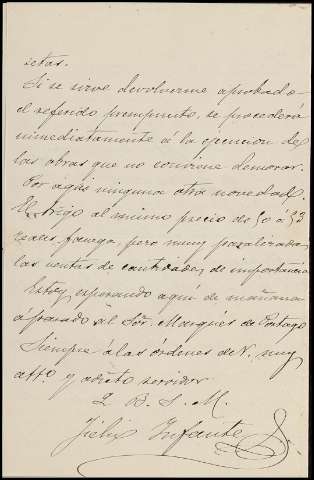 setas.
Si se sirve devolverme aprobado
el referido presupuesto, se procederá
inmediatamente á la ejecucion de
las obras que no conviene demorar.
Por aqui ninguna otra novedad.
El trigo al mismo precio de 50 á 53
reales fanega, pero muy paralizadas
las ventas de cantidades de importancia
Estoy esperando aquí de mañana
á pasado al Sór. Marqués de Portago
Siempre á las órdenes de V. muy
affo. y adicto servidor
Q. B. S. M.
Felix Infante